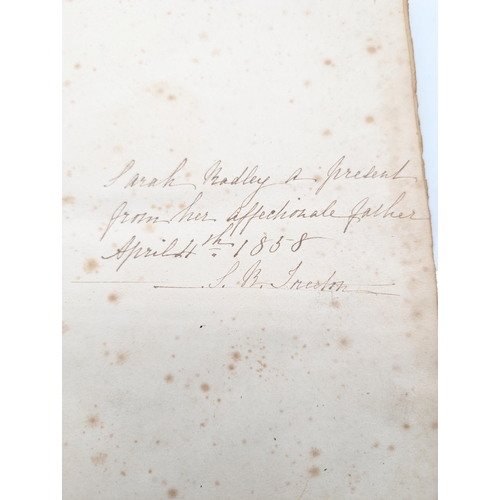 Sarah Radley a present
from her affectionate father
April 4th. 1858
S. R.